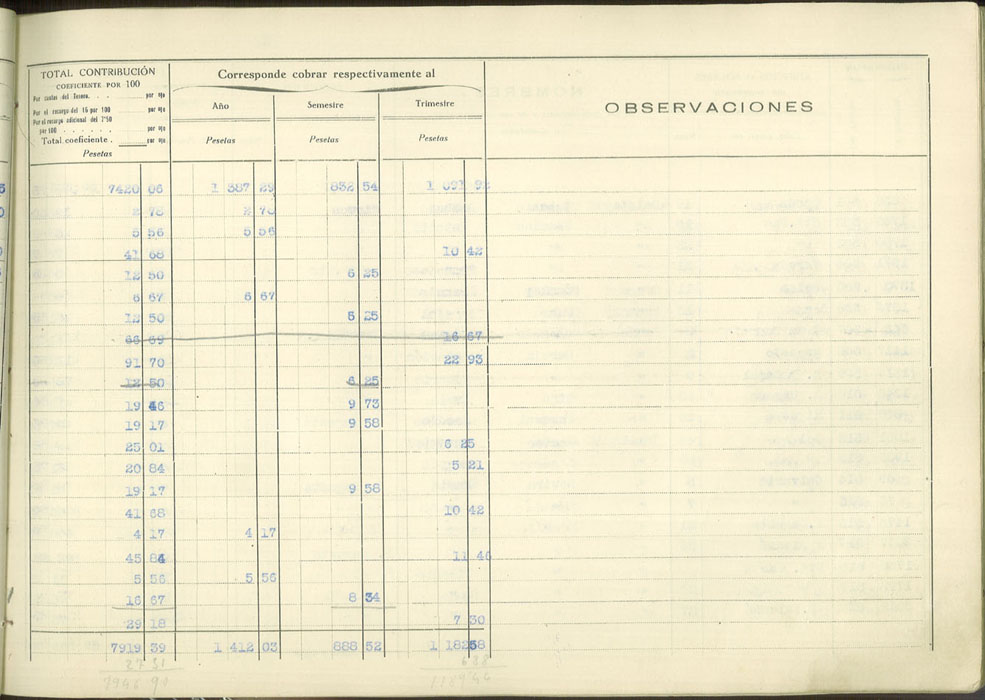 TOTAL CONTRIBUCIÓN
COEFICIENTE POR 100
Por cuotas del Tesoro. . . por 0/0
Por el recargo del 16 por 100 por 0/0
Por el recargo adicional del 7'50
por 100 . . . . . . por 0/0
Total coeficiente . por 0/0
Pesetas
Corresponde cobrar respectivamente al
Año Semestre Trimestre
Pesetas Pesetas Pesetas
OBSERVACIONES
7420 06 1 387 29 832 54 1 091
2 78 2 78
5 56 5 56
41 68 10 42
12 50 6 25
6 67 6 67
12 50 6 25
66 69 16 67
91 70 22 93
12 50 6 25
19 46 9 73
19 17 9 58
25 01 6 25
20 84 5 21
19 17 9 58
41 68 10 42
4 17 4 17
45 84 11 46
5 56 5 56
16 67 8 34
29 18 7 30
7919 39 1 412 03 888 52 1 18258